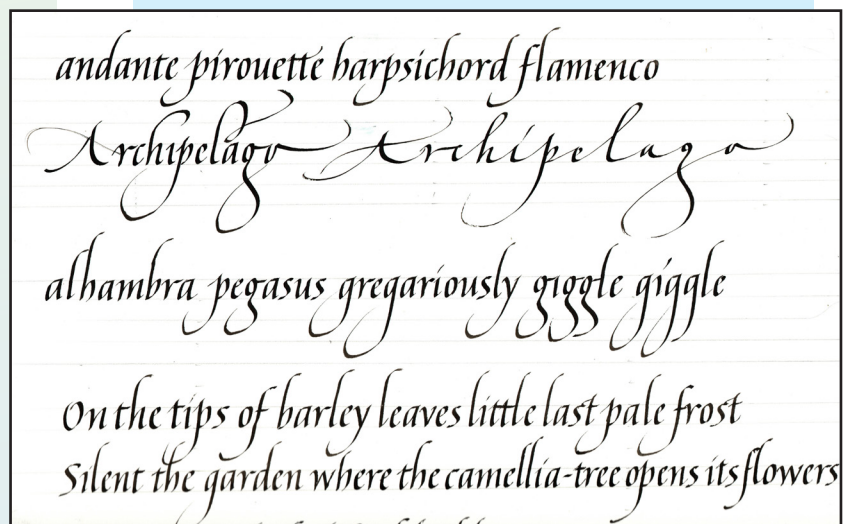 andante pirouette harpsichord flamenco
Archipelago Archipelago
alhambra pegasus gregariously giggle giggle
On the tips of barley leaves little last pale frost
Silent the garden where the camellia-tree opens its flowers